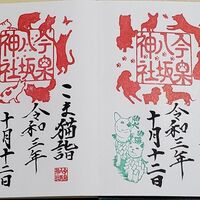 今泉
八坂
神社
令和三年
十月十二日
今泉
八坂
神社
こま猫詣
令和三年
十月十二日